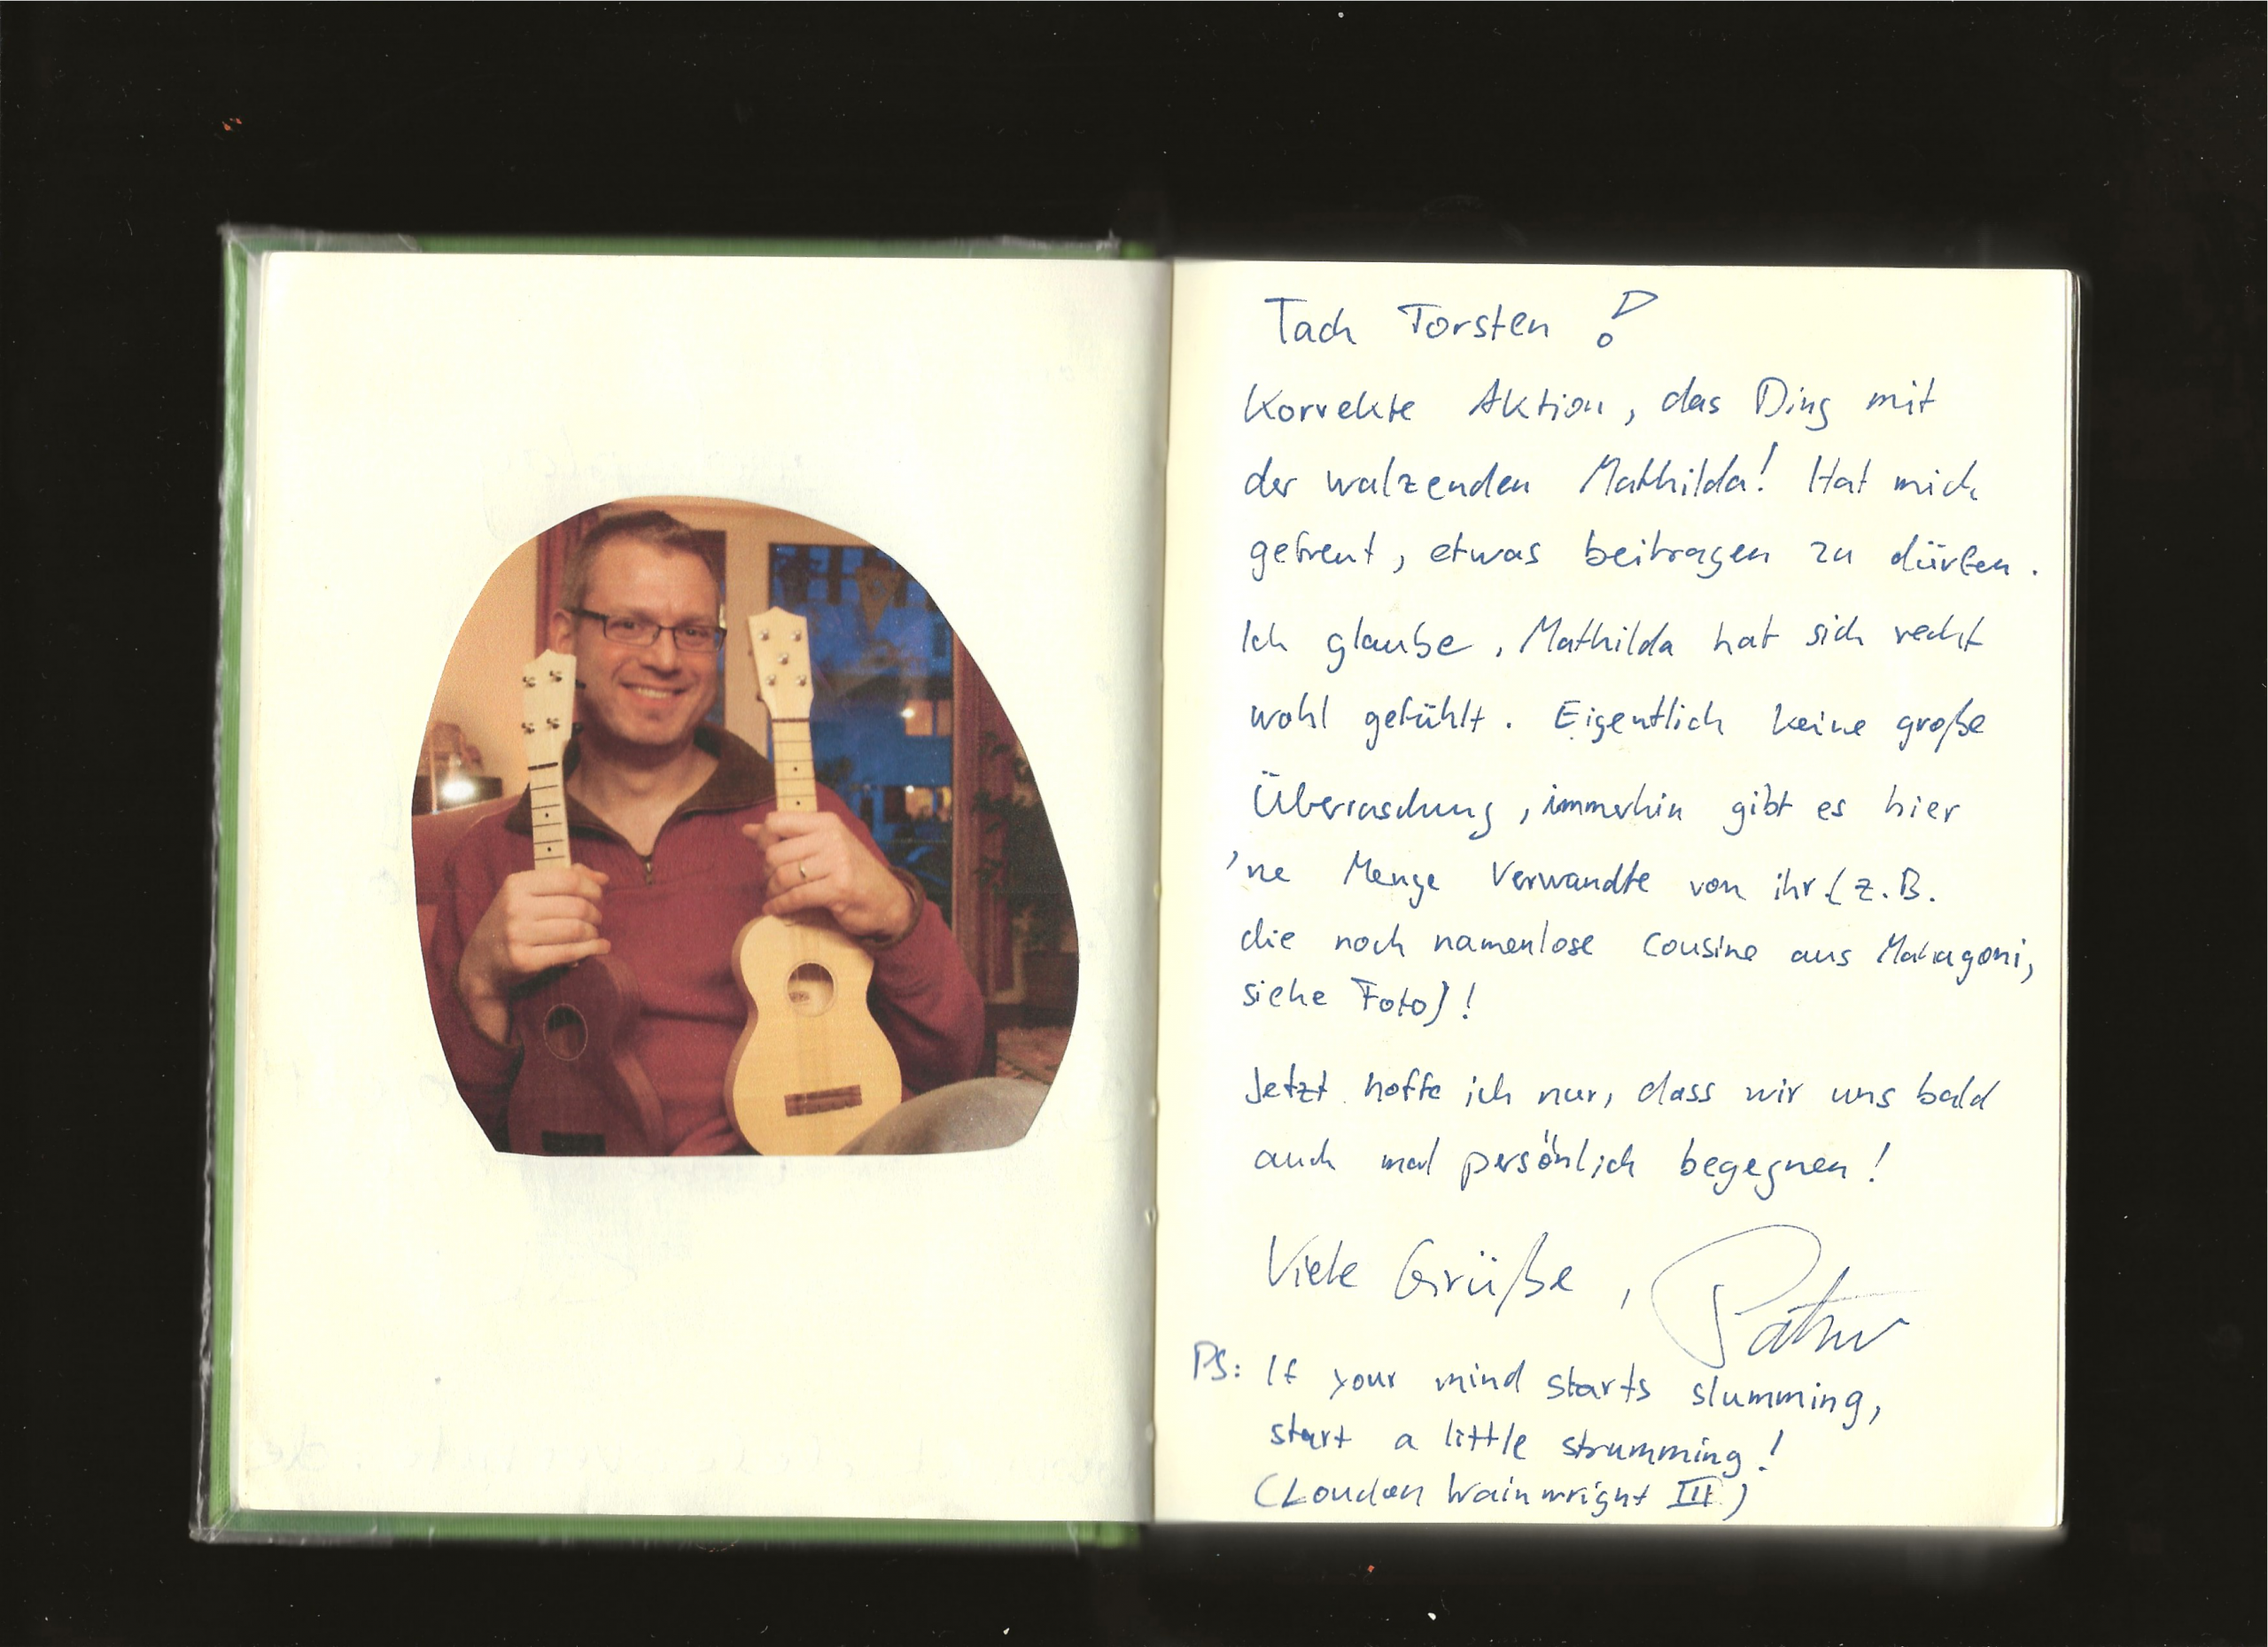 Tach Torsten!
Korrekte Aktion, das Ding mit
der walzenden Mathilda! Hat mich
gefreut, etwas beitragen zu dürfen.
Ich glaube, Mathilda hat sich recht
wohl gefühlt. Eigentlich keine große
Überraschung, immerhin gibt es hier
'ne Menge Verwandte von ihr (z.B.
die noch namenlose Cousine aus Mahagoni,
siehe Foto)!
Jetzt hoffe ich nur, dass wir uns bald
auch mal persönlich begegnen!
Viele Grüße,
PS: If your mind starts slumming,
start a little strumming!
(Loudon Wainwright III)